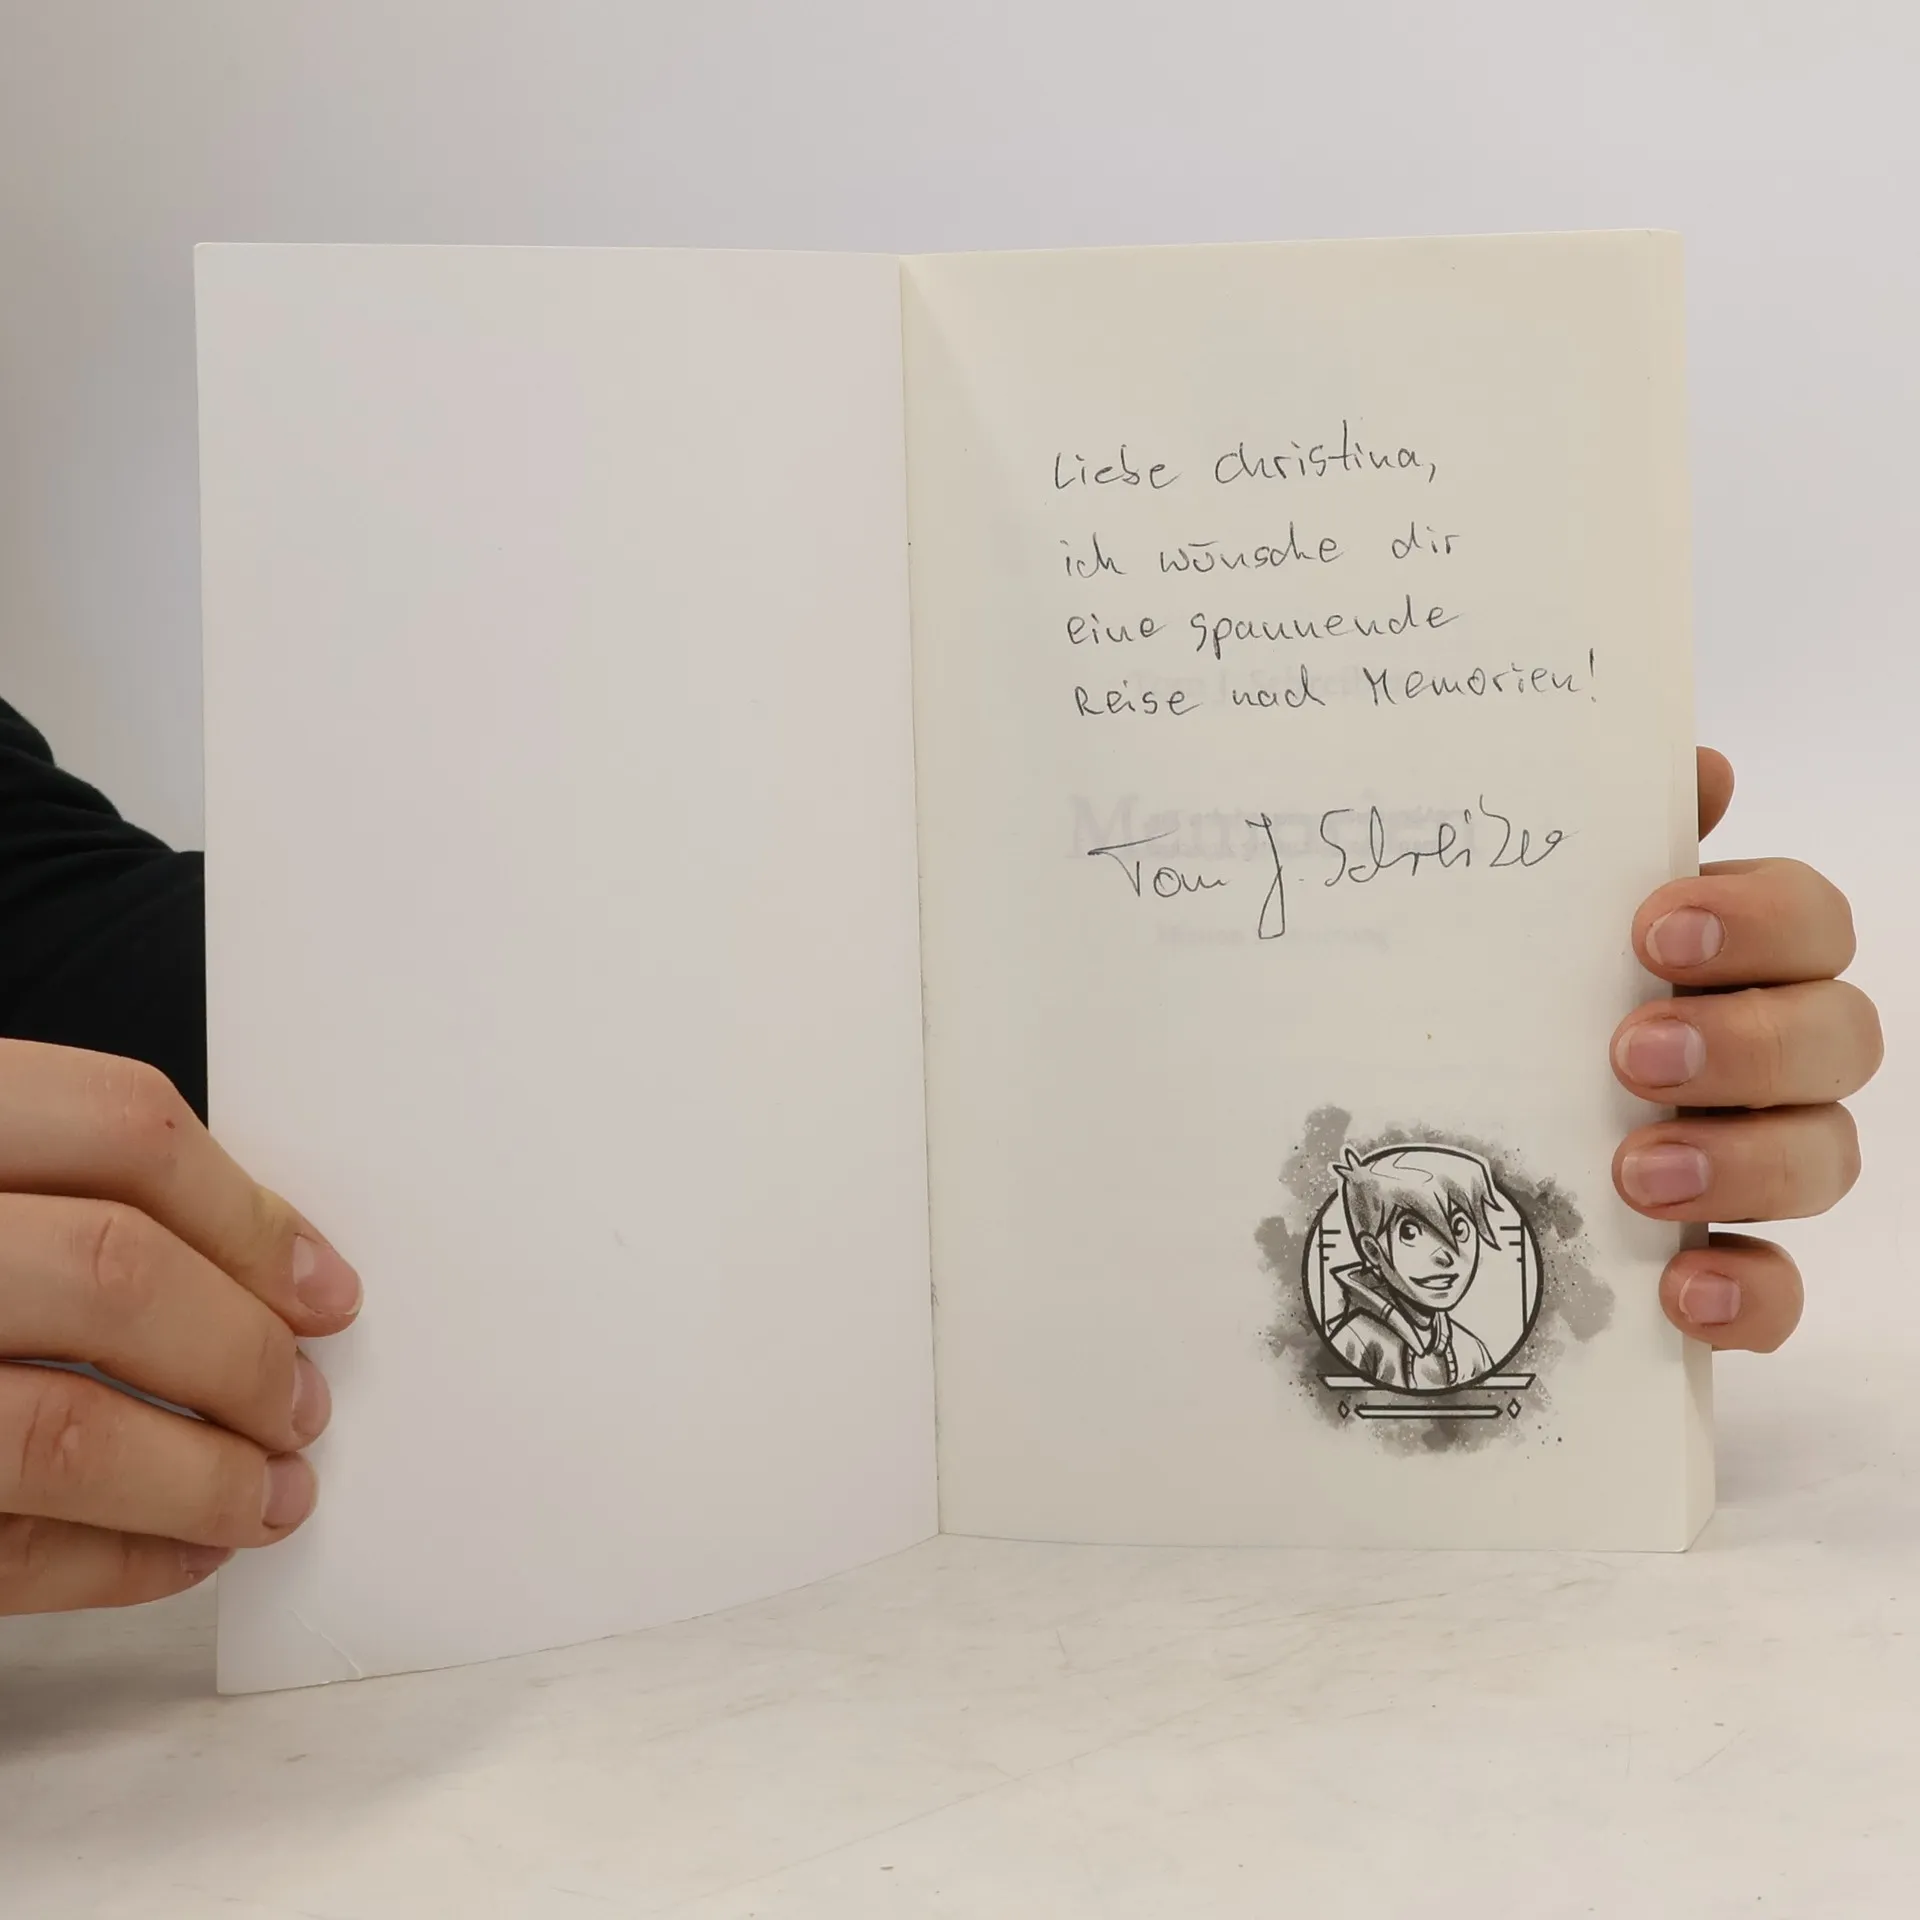 Liebe Christina,
ich wünsche dir
eine spannende
Reise nach Memorien!
Tom J. Schreiber
Memorien